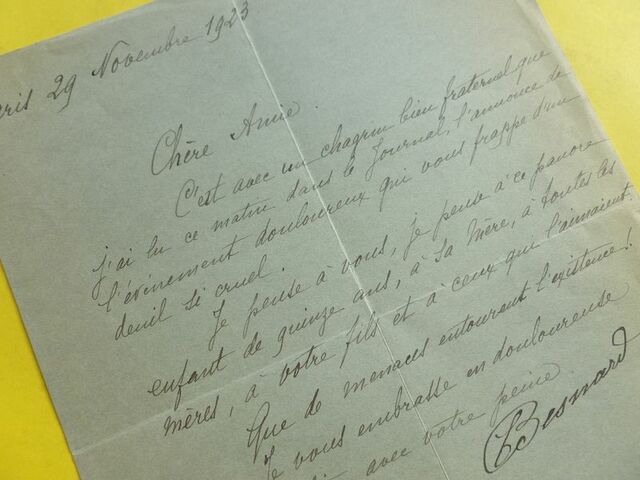 aris 29 Novembre 1923
Chère Amie.
C'est avec un chagrin bien fraternel que
j'ai lu ce matin dans le Journal, l'annonce de
l'événement douloureux qui vous frappe d'un
deuil si cruel.
Je pense à vous, je pense à ce pauvre
enfant de quinze ans, à sa mère, à toutes les
mères, à votre fils et à ceux qui l'aimaient.
Que de menaces entourent l'existence!
Je vous embrasse en douloureuse
avec votre peine
Besnard